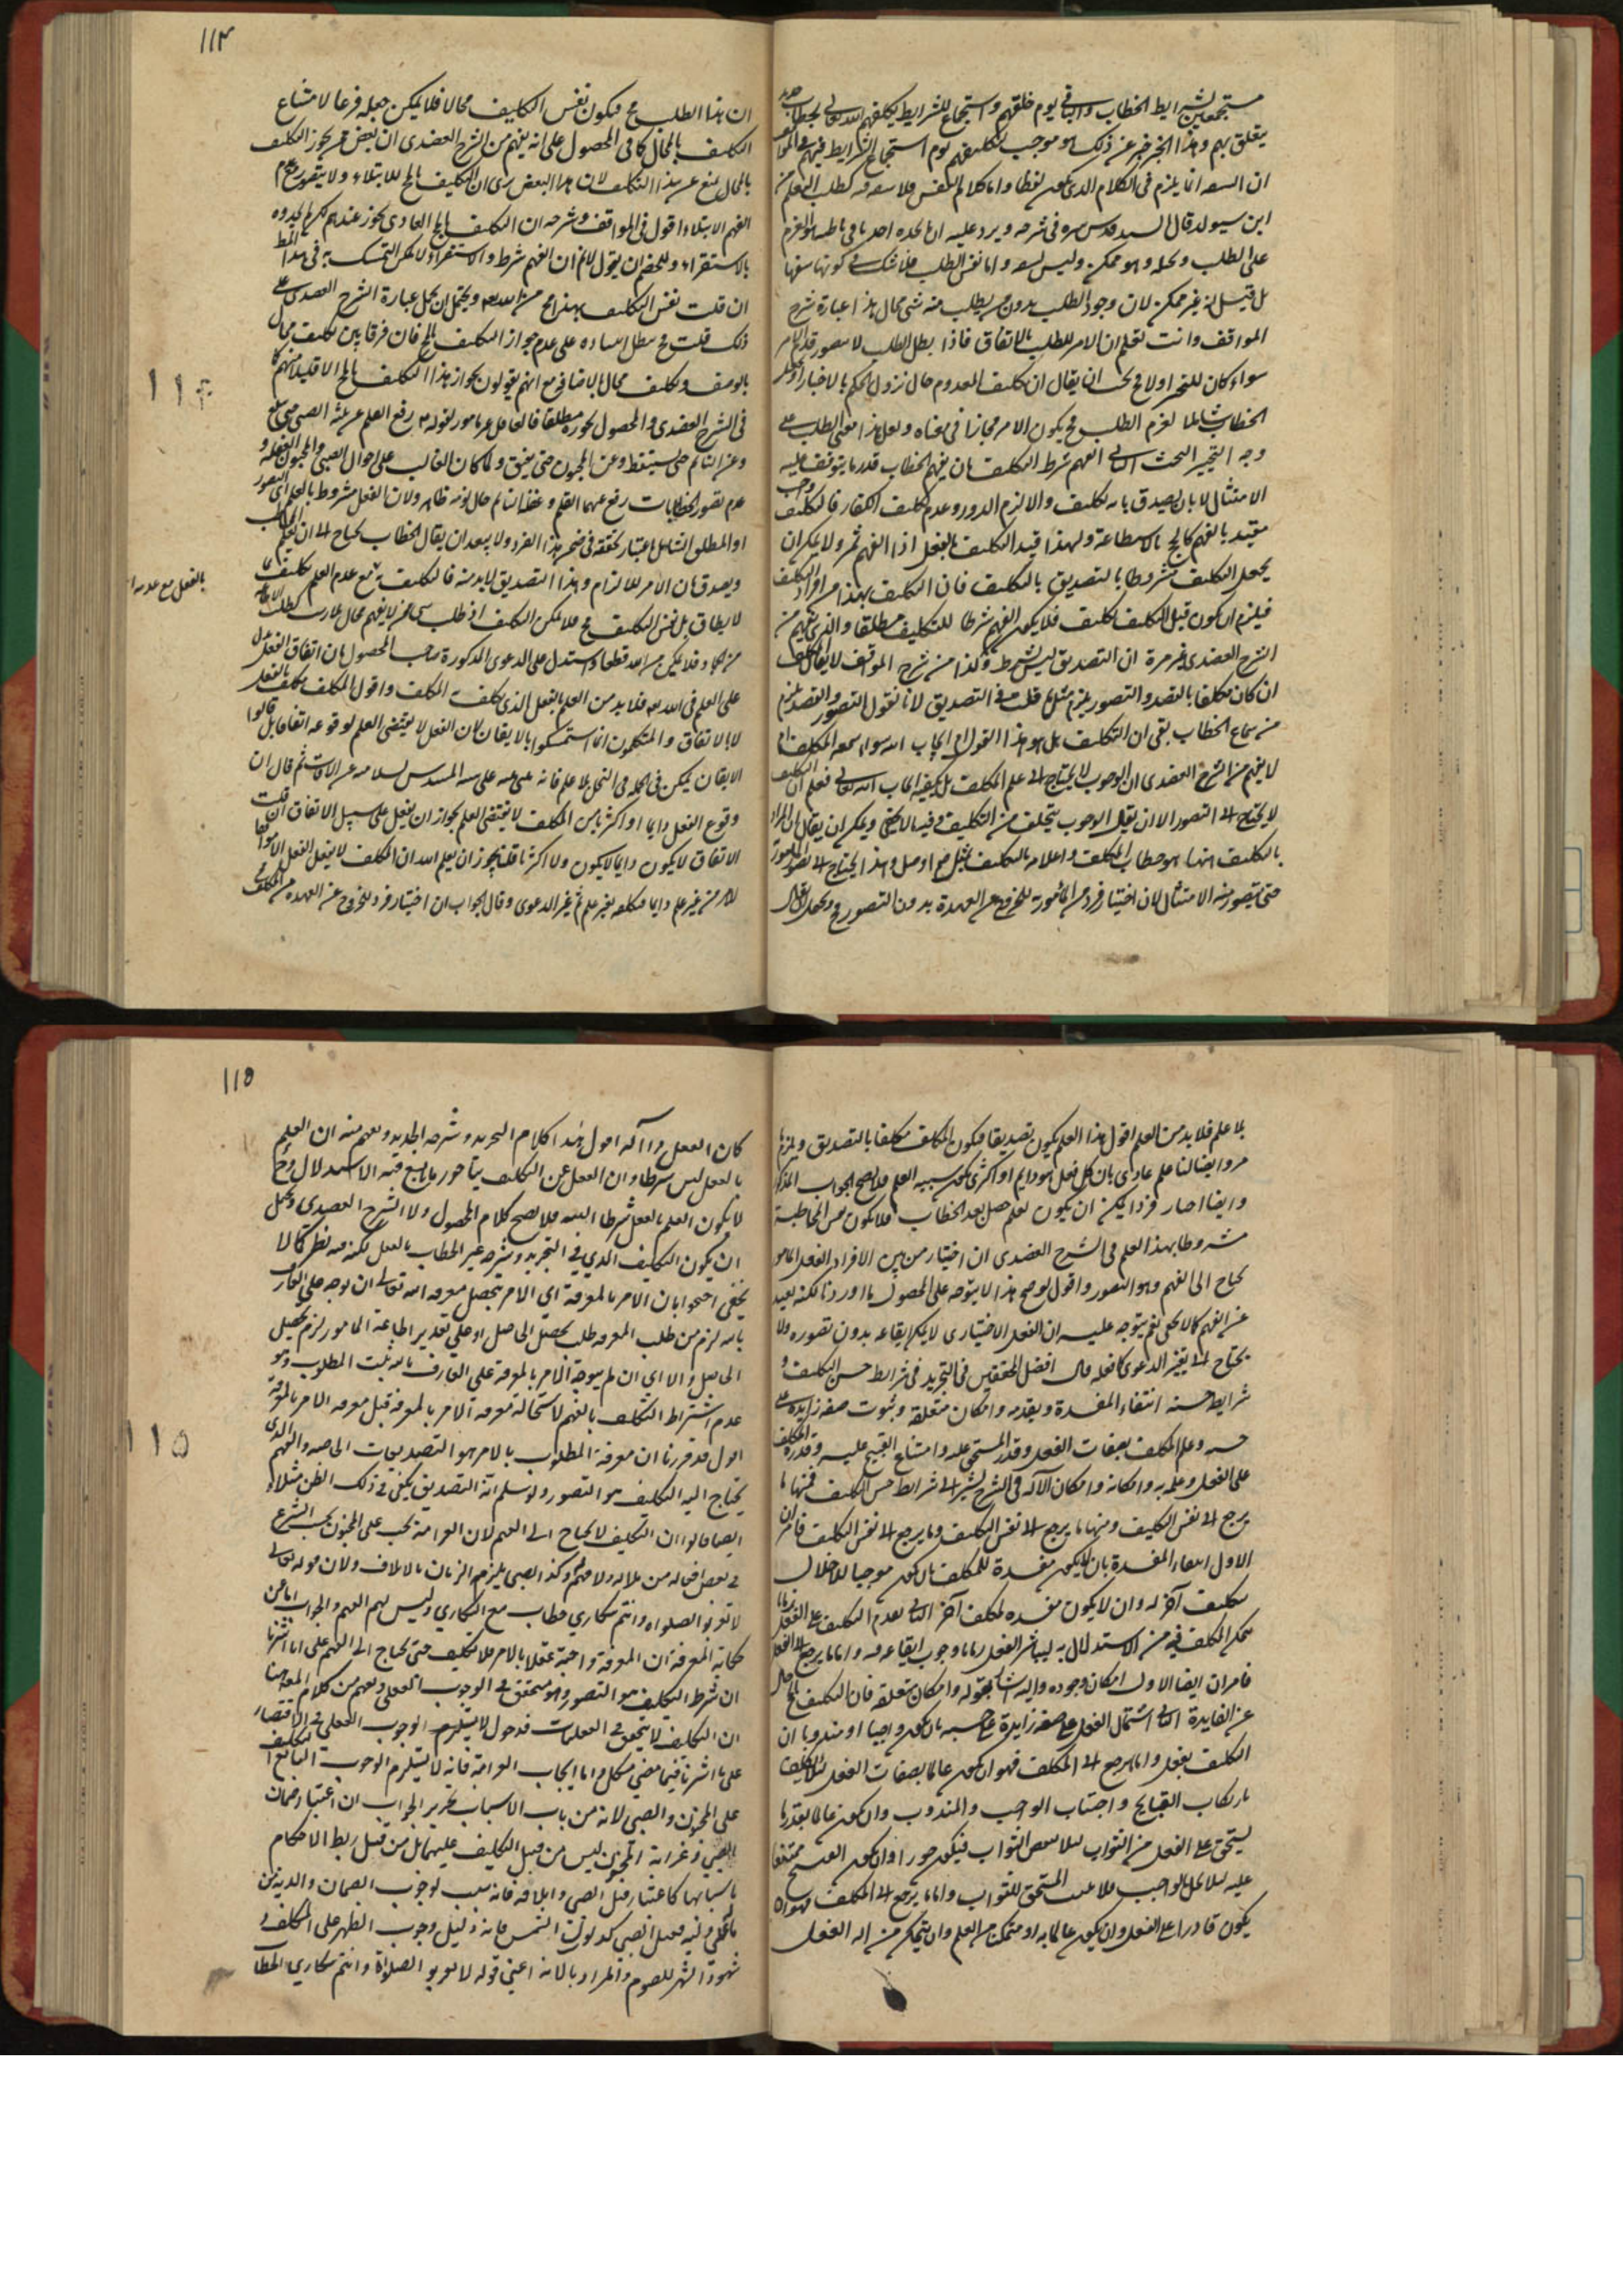 مستجمعين لشرايط الخطاب والباقي يوم خلقهم واستجماع للشرايط يكلفهم الله تعالى بخطاب
يتعلق بهم وهذا الخبر خبر عن ذلك هو موجب لتكليفهم يوم استجماع الشرايط فيهم
ان السفه انما يلزم في الكلام الذي لفظا واما كلام النفس فلا سفه فيه كطلب التعلم من
ابن سيولد قال السيد قدس سره في شرحه ويرد عليه ان ما يجده احدنا في باطنه هو العزم
على الطلب وتخيله وهو ممكن وليس بسفه واما نفس الطلب فلا شك في كونها سفها
بل قيل انه غير ممكن لان وجود الطلب بدون من يطلب منه شئ محال هذا عبارة شرح
المواقف وانت تعلم ان الامر للطلب بالاتفاق فاذا بطل الطلب لا يتصور قدم الامر
سواء كان للتخير اولا ان يقال ان تكليف المعدوم حال نزول الحكم بالاخبار
الخطاب شاملا لعزم الطلب ح يكون الامر مجازا في معناه ولعل هذا معنى الطلب على
وجه التخيير البحث الثاني الفهم شرط التكليف بان يفهم الخطاب قدر ما يتوقف عليه
الامتثال لا بان يصدق بانه تكليف والا لزم الدور وعدم تكليف الكفار فالتكليف
مقيد بالفهم كالحج بالاستطاعة ولهذا قيد التكليف بالفعل اذا الفهم ثمر ولا يمكن ان
يجعل التكليف مشروطا بالتصديق بالتكليف فان التكليف بهذا من افراد التكليف
فيلزم ان يكون قبل التكليف تكليف فلا يكون الفهم شرطا للتكليف مطلقا والذي يفهم من
الشرح العضدي غير مرة ان التصديق ليس بشرط وكذا من شرح المواقف لا يقال المكلف
ان كان مكلفا بالتصور يلزم مثل ما قلت في التصديق لانا نقول التصور والتصديق يلزم
من سماع الخطاب بقي ان التكليف بل هو هذا القول او ايجاب الله سواء سمعه المكلف او
لا يفهم من الشرح العضدي ان الوجوب لا يحتاج الى علم المكلف بل يكفيه ايجاب الله تعالى فعلم ان التكليف
لا يحتاج الى التصور الا ان يقال الوجوب يتخلف من التكليف وفيه ما لا يخفى ويمكن ان يقال ان المراد
بالتكليف هنا هو خطاب المكلف واعلامه بالتكليف مثل صم او صل وهذا يحتاج الى تصور المأمور
حتى يتصور منه الامتثال لان اختيار فرد من المأمور به للخروج عن العهدة بدون التصور
١١٤
ان هذا الطلب ح فيكون نفس التكليف محالا فلا يمكن جعله فرعا لامتناع
التكليف بالمحال كما في المحصول على انه يفهم من الشرح العضدي ان بعض من يجوز التكليف
بالمحال يمنع عن هذا التكليف لان هذا البعض رأى ان التكليف بالمح للابتلاء ولا يتصور مع عدم
الفهم الابتلاء اقول في المواقف وشرحه ان التكليف بالمح العادي يجوز عندهم
بالاستقراء وللخصم ان يقول لا نم ان الفهم شرط والاستقراء لا يمكن التمسك به في هذا المط
ان قلت نفس التكليف بهذا مح من الله تعالى ويحتمل ان يحمل عبارة الشرح العضدي على
ذلك قلت ح يبطل على عدم جواز التكليف بالمح فان فرقا بين تكليف محال
بالوصف وتكليف محال بالاضافة مع انهم يقولون بجواز هذا التكليف بالمح الا قليلا منهم كما
في الشرح العضدي والمحصول يجوزه مطلقا فالغافل غير مأمور لقوله رفع القلم عن ثلثة الصبي حتى يبلغ
وعن النائم حتى يستيقظ وعن المجنون حتى يفيق ولما كان الغالب على احوال الصبي والمجنون الغفلة و
عدم تصور الخطابات رفع عنهما القلم وغفلة النائم حال نومه ظاهر ولان الفعل مشروط بالعلم اي التصور
او المطلق الشامل باعتبار تحققه في ضمن هذا الفرد ولا يبعد ان يقال الخطاب يحتاج الى ان يعلم
ويصدق بان الامر للالزام وهذا التصديق لا بد منه فالتكليف به مع عدم العلم تكليف بما
لا يطاق بل نفس التكليف ح فلا يمكن التكليف اذ طلب شئ ممن لا يفهم محال
بالفعل مع عدمه
من الجماد فلا يمكن من الله قطعا واستدل على الدعوى المذكورة صاحب المحصول بان اتفاق الفعل يدل
على العلم في الله تعالى فلا بد من العلم بالفعل الذي يكلف به المكلف واقول المكلف يكلف بالفعل
لا بالاتفاق والمتكلمون انما استمسكوا بالايقان لان الفعل لا يقتضي العلم لوقوعه اتفاقا بل قالوا
الايقان يمكن في الجملة في النحل بلا علم فانه يبني بيته على هيئة المسدس لسلامته عن الآفات ثم قال ان
وقوع الفعل دايما او اكثريا من المكلف لا يقتضي العلم بجواز ان يفعل على سبيل الاتفاق ان قلت
الاتفاق لا يكون دايما لا يكون ولا اكثريا قلت يجوز ان يعلم الله ان المكلف لا يفعل الفعل
من غير علم دايما فيكلفه بغير علم ثم غير الدعوى وقال الجواب ان اختيار فرد للخروج عن العهدة من المكلف
١١٤
بلا علم فلا بد من العلم اقول هذا العلم يكون تصديقا فيكون المكلف مكلفا بالتصديق ويلزم
وايضا لنا علم عادي بان كل فعل هو دايم او اكثري يكون بسببه العلم فلا يصح الجواب المذكور
وايضا اختيار فرد يمكن ان يكون لعلم حصل بعد الخطاب فلا يكون نفس المخاطبة
مشروطا بهذا العلم في الشرح العضدي ان اختيار من بين الافراد الفعل المأمور
يحتاج الى الفهم وهو التصور واقول توضيح هذا لا يتوجه على المحصول ما اوردنا لكنه بعيد
عن الفهم كما لا يخفى نعم يتوجه عليه ان الفعل الاختياري لا يمكن ايقاعه بدون تصوره ولا
يحتاج الى تغيير الدعوى كما فعله قال افضل المحققين في التجريد في شرايط حسن التكليف و
شرايط حسنه انتفاء المفسدة وتقدمه وامكان متعلقه وثبوت صفة زايدة على
حسنه وعلم المكلف بصفات الفعل وقدر المستحق عليه وامتناع القبيح عليه وقدرة المكلف
على الفعل وعلمه به وامكانه وامكان الآلة في الشرح يشير الى شرايط حسن التكليف فمنها ما
يرجع الى نفس التكليف ومنها ما يرجع الى نفس المكلف وما يرجع الى نفس التكليف فامران
الاول انتفاء المفسدة بان لا يكون مفسدة للمكلف بان يكون موجبا للاخلال
بتكليف آخر له وان لا يكون مفسدة لمكلف آخر الثاني تقدم التكليف على الفعل زمانا
يتمكن المكلف فيه من الاستدلال به ليباشر الفعل زمان وجوب ايقاعه فيه واما ما يرجع الى الفعل
فامران ايضا الاول امكان وجوده واليه اشار بقوله وامكان متعلقه فان التكليف بالمح خال
عن الفايدة الثاني اشتمال الفعل على صفة زايدة على حسنه بان يكون واجبا او مندوبا ان
التكليف بفعل واما يرجع الى المكلف فهو ان يكون عالما بصفات الفعل لئلا يكلف
بارتكاب القبايح واجتناب الواجب والمندوب وان يكون عالما بقدر ما
يستحق على الفعل من الثواب لئلا ينقص الثواب فيكون جورا وان يكون القبيح ممتنعا
عليه لئلا يخل بالواجب فلا يثيب المستحق للثواب واما ما يرجع الى المكلف فهو ان
يكون قادرا على الفعل وان يكون عالما به او متمكن من العلم وان يتمكن من آلة الفعل
١١٥
كان الفعل ذا آلة اقول هذا كلام التجريد وشرحه الجديد ويعلم منه ان العلم
بالفعل ليس شرطا وان الفعل عن التكليف يتأخر ما يسع فيه الاستدلال وح
لا يكون العلم بالفعل شرطا البتة فلا يصح كلام المحصول ولا الشرح العضدي ويحتمل
ان يكون التكليف الذي في التجريد وشرحه غير الخطاب بالفعل لكنه فيه نظر كما لا
يخفى احتجوا بان الامر بالمعرفة اي الامر بتحصيل معرفة الله تعالى ان توجه على العارف
بالله لزم من طلب المعرفة طلب تحصيل الحاصل او على تقدير اطاعة المأمور لزم تحصيل
الحاصل والا اي ان لم يتوجه الامر بالمعرفة على العارف بالله ثبت المطلوب وهو
عدم اشتراط التكليف بالفهم لاستحالة معرفة الامر بالمعرفة قبل معرفة الآمر بالمعرفة
اقول قد قررنا ان معرفة المطلوب بالامر هو التصديقات الخاصة والفهم الذي
يحتاج اليه التكليف هو التصور ولو سلم انه التصديق يكفي في ذلك الظن مثلا و
ايضا قالوا ان التكليف لا يحتاج الى الفهم لان الغرامة تجب على المجنون بحسب الشرع
في بعض افعاله من بلا له ولا فهم وكذا الصبي يلزمه الزمان بالاتلاف ولان قوله تعالى
لا تقربوا الصلواة وانتم سكاري خطاب مع السكاري وليس لهم الفهم والجواب اما عن
حكاية المعرفة ان المعرفة واجبة عقلا بالامر فلا تكليف حتى يحتاج الى الفهم على انا اشرنا
ان شرط التكليف هو التصور وهو متحقق في الوجوب العقلي ويفهم من كلام المص هنا
ان التكليف لا يتحقق في العقليات فدخول لا يستلزم الوجوب العقلي في التكليف الاقتصار
على ما اشرنا فيما مضى مشكل واما ايجاب الغرامة فانه لا يستلزم الوجوب البالغ
على المجنون والصبي لانه من باب الاسباب تحرير الجواب ان اعتبار ضمان
الصبي وغرامة المجنون ليس من قبيل التكليف عليهما بل من قبيل ربط الاحكام
باسبابها كاعتبار قتل الصبي واتلافه فانه سبب لوجوب الضمان والدية من
ماله في وليه فعل الصبي كدلوك الشمس فانه دليل وجوب الظهر على المكلف و
شهود الشهر للصوم والمراد بالآية اعني قوله لا تقربوا الصلاة وانتم سكاري الخطا
١١٥